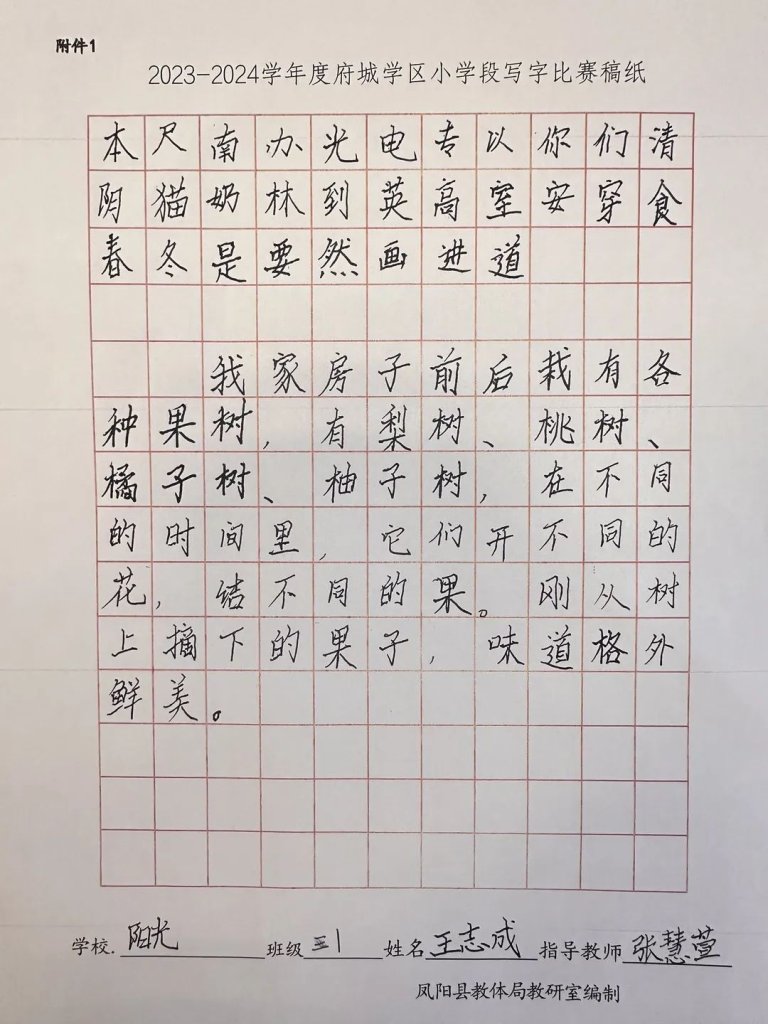 附件1
2023-2024学年度府城学区小学段写字比赛稿纸
本尺南办光电专以你们清
阴猫奶林到英高室安穿食
春冬是要然画进道
我家房子前后栽有各
种果树，有梨树、桃树、
橘子树、柚子树，在不同
的时间里，它们开不同的
花，结不同的果。刚从树
上摘下的果子，味道格外
鲜美。
学校.阳光 班级三1 姓名王志成 指导教师张慧萱
凤阳县教体局教研室编制